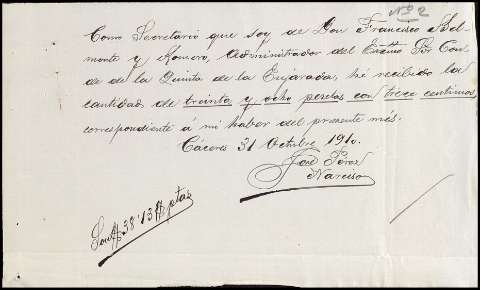 Nº 2
Como Secretario que soy de Don Francisco Bel-
monte y Romero, Administrador del Exctmo Sr Con-
de de la Quinta de la Enjarada, hé recibido la
cantidad de treinta y ocho pesetas con trece centimos,
correspondiente á mi haber del presente més.
Cáceres 31 Octubre 1910.
José Pérez
Narciso
Son # 38'13 # ptas